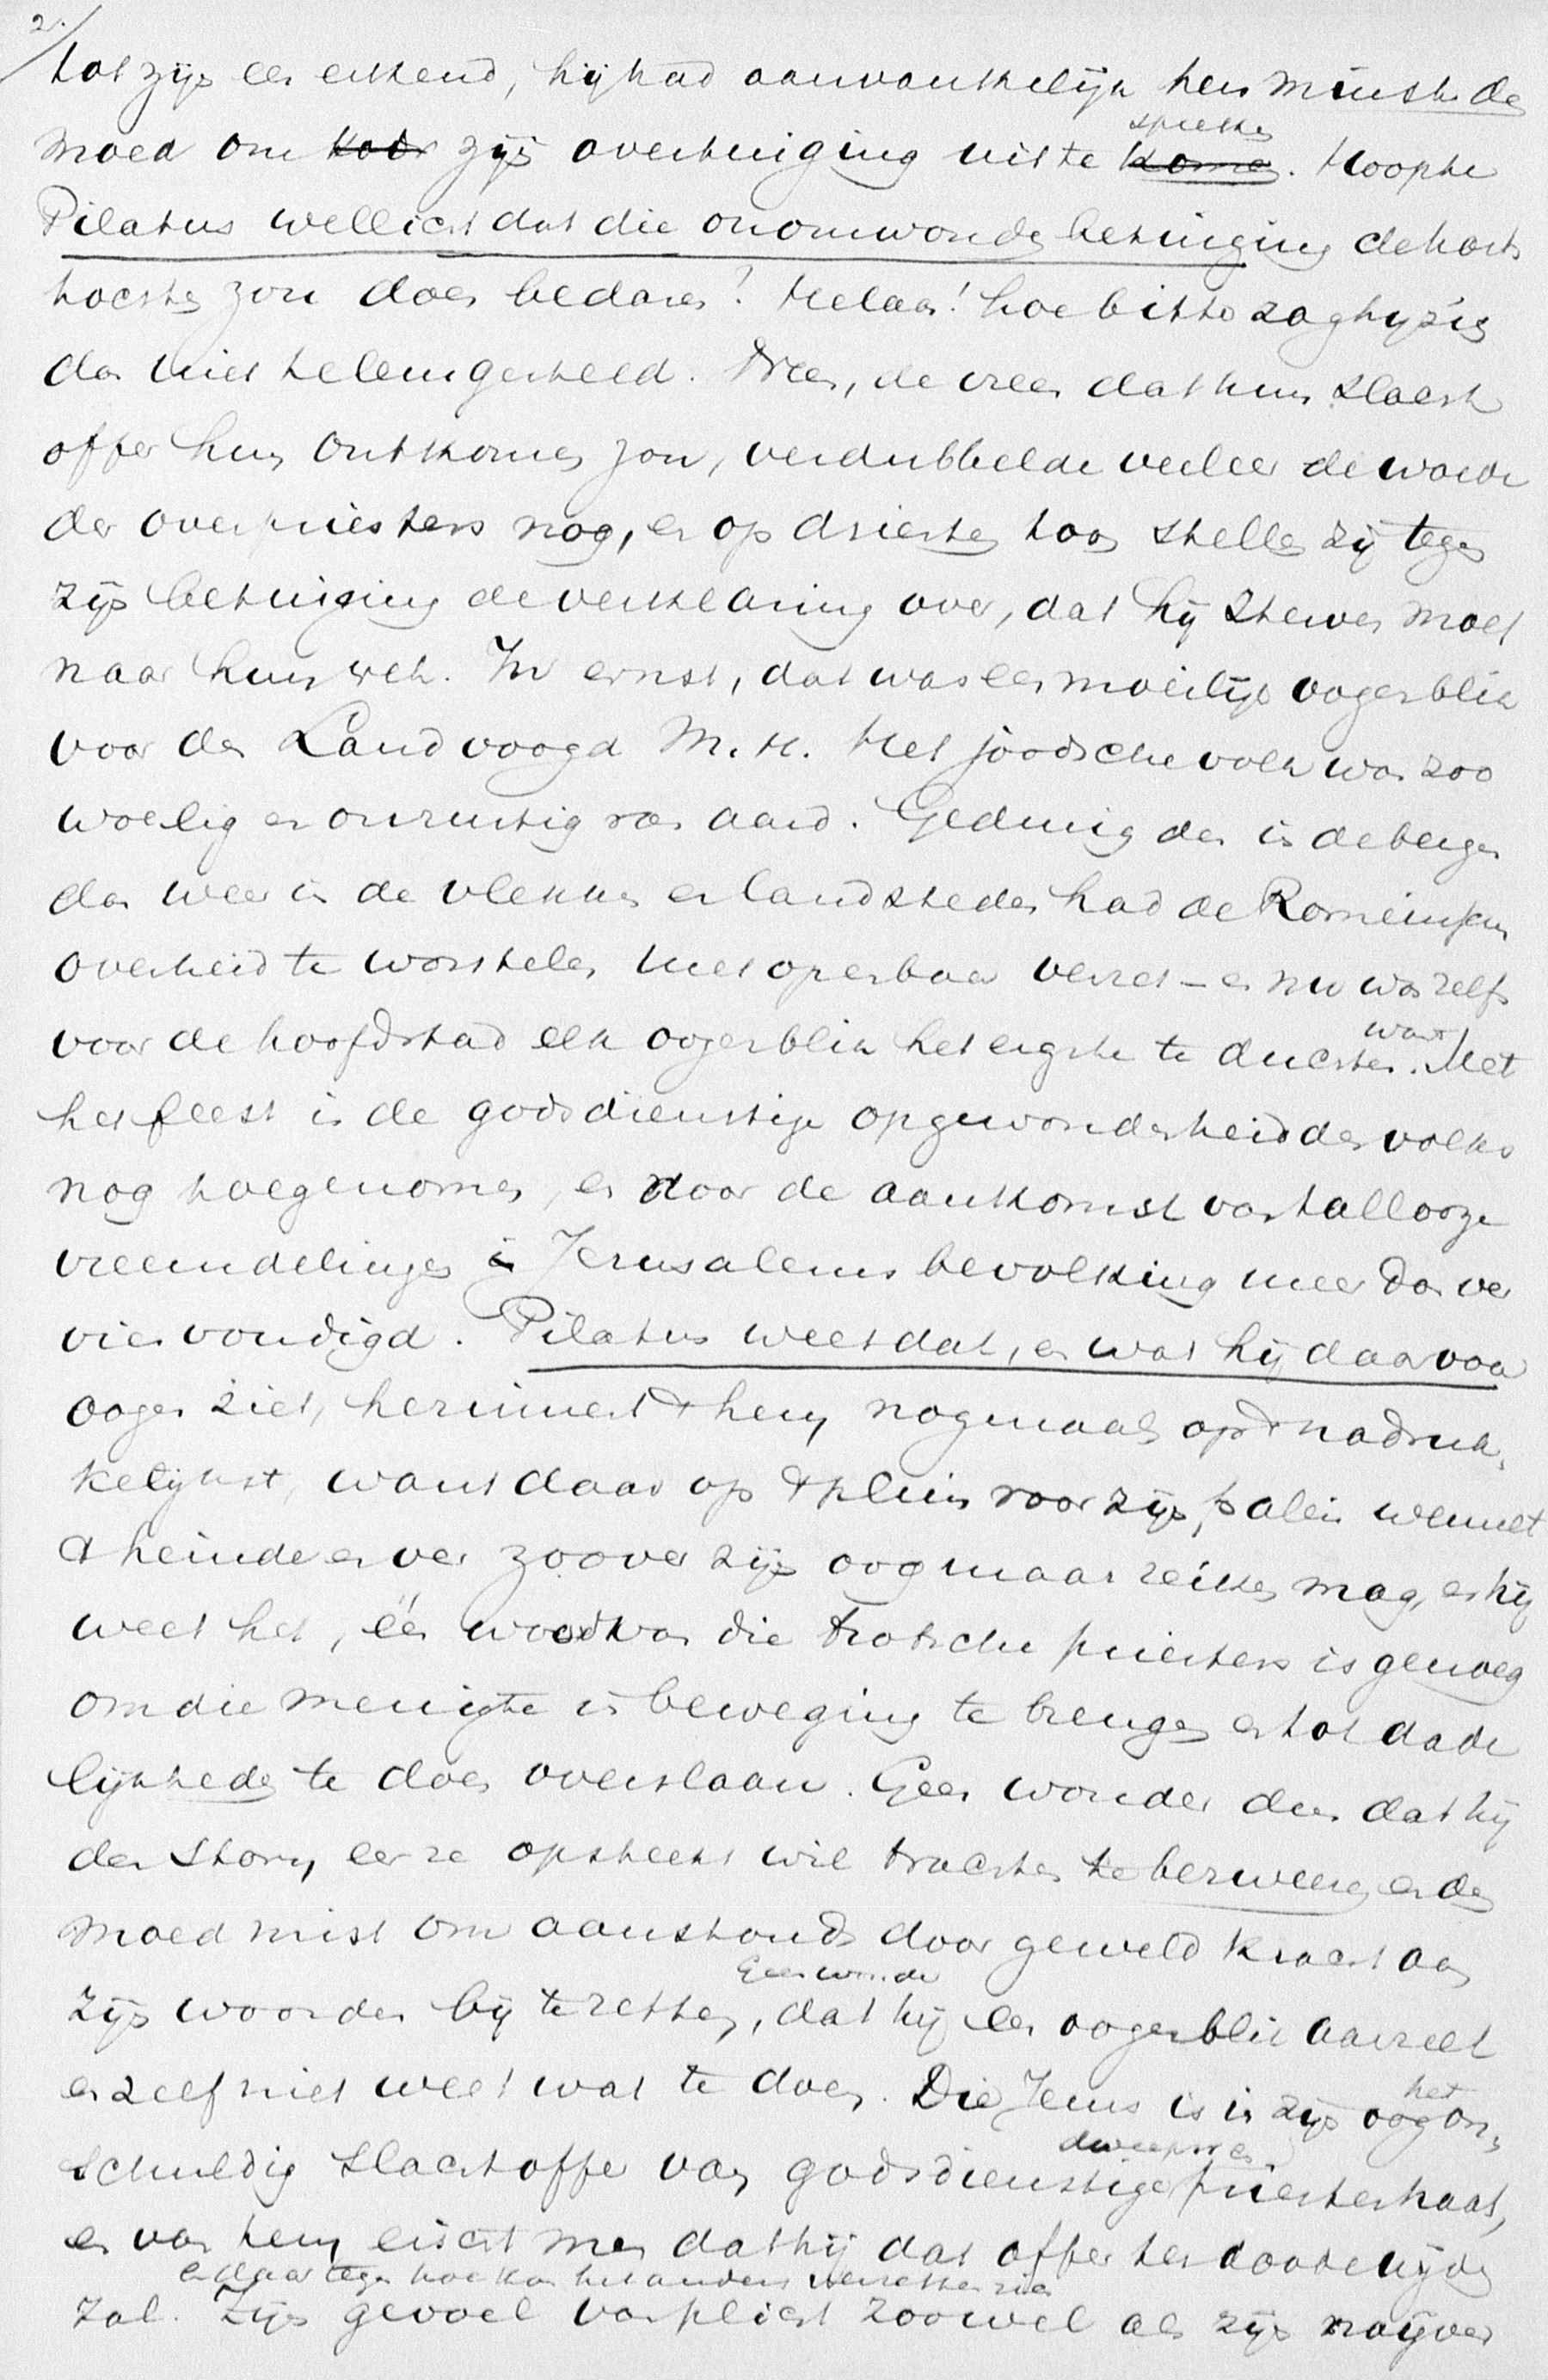 2.
tot zijn eer erkend, hij had aanvankelijk ten minste de
moed om voor zijn overtuiging uit te komen spreken. Hoopte
Pilatus wellicht dat die onomwonden betuiging de harts
tochten zou doen bedaren? Helaas! hoe bitter zag hij zich
daarin teleurgesteld. Vrees, de vrees dat hun slacht
offer hun ontkomen zou, verdubbelde veeleer de woede
der overpriesters nog, en op driesten toon stellen zij tegen
zijn betuiging de verklaring over, dat hij sterven moet
naar hun wet. In ernst, dat was een moeilijk oogenblik
voor den Landvoogd M. H. Het joodsche volk was zoo
woelig en onrustig van aard. Gedurig dan in de bergen
dan weer in de vlekken en landsteden had de Romeinsche
overheid te worstelen met openbaar verzet – en nu was zelfs
voor de hoofdstad elk oogenblik het ergste te duchten. want Met
het feest is de godsdienstige opgewondenheid des volks
nog toegenomen, en door de aankomst van tallooze
vreemdelingen is Jerusalems bevolking meer dan ver
viervoudigd. Pilatus weet dat, en wat hij daar voor
oogen ziet, herinnert 't hem nogmaals op 't nadruk
kelijkst, want daar op 't plein voor zijn paleis wemelt
't heinde en ver zoover zijn oog maar reiken mag, en hij
weet het, één woord van die trotsche priesters is genoeg
om die menigte in beweging te brengen en tot dade
lijkheden te doen overslaan. Geen wonder dus dat hij
den storm, eer ze opsteekt wil trachten te bezweren en den
moed mist om aanstonds door geweld kracht aan
zijn woorden bij te zetten, Geen wonder dat hij een oogenblik aarzelt
en zelf niet weet wat te doen. Die Jezus is in zijn oog het on
schuldig slachtoffer van godsdienstige priesterhaat,
en van hem eischt men dat hij dat offer ten doode wijden
zal. en daar tegen hoe kan het anders verzet zich
Zijn gevoel van plicht zoowel als zijn naijver